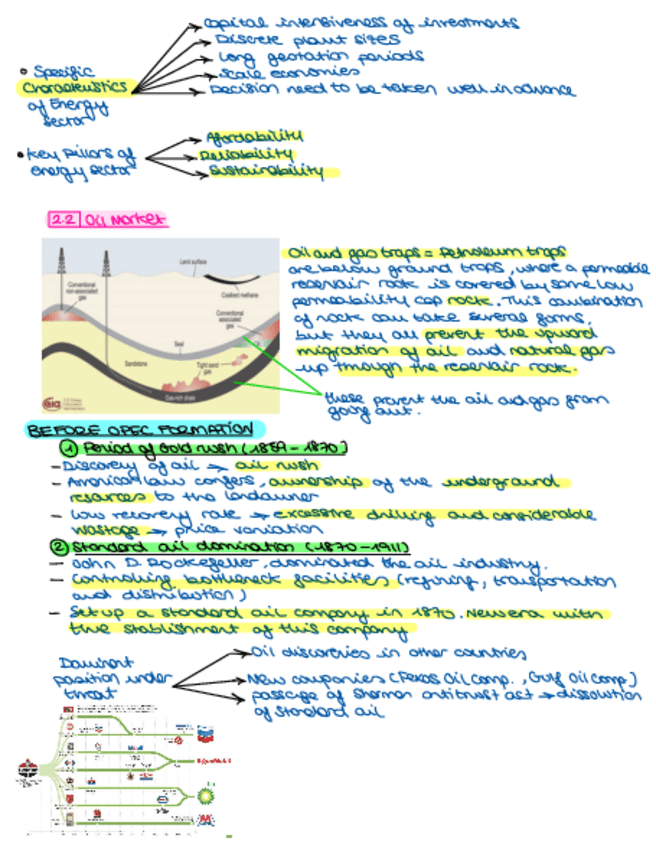 Capital intensiveness of investments
Discrete plant sizes
Long gestation periods
Scale economies
Decision need to be taken well in advance
• Specific
Characteristics
of Energy
sector
Affordability
Reliability
Sustainability
• Key Pillars of
energy sector
2.2 Oil Market
Oil and gas traps = Petroleum traps
are below ground traps, where a permeable
reservoir rock is covered by some low
permeability cap rock. This combination
of rock can take several forms,
but they all prevent the upward
migration of oil and natural gas
up through the reservoir rock.
these prevent the oil and gas from
going out.
Land surface
Conventional
non-associated
gas
Coalbed methane
Conventional
associated
gas
Oil
Seal
Sandstone
Tight sand
gas
Gas-rich shale
eia
BEFORE OPEC FORMATION
1 Period of Gold rush (1859 - 1870)
- Discovery of oil → oil rush
- American law confers, ownership of the underground
resources to the landowner
- Low recovery rate → excessive drilling and considerable
wastage → price variation
2 Standard oil domination (1870 - 1911)
- John D. Rockefeller, dominated the oil industry.
- Controlling bottleneck facilities (refining, transportation
and distribution)
- Set up a standard oil company in 1870. New era with
the stablishment of this company
Dominant
position under
threat
Oil discoveries in other countries
New companies (Texas Oil Comp., Gulf Oil Comp)
passage of Sherman antitrust act → dissolution
of Standard oil
ExxonMobil